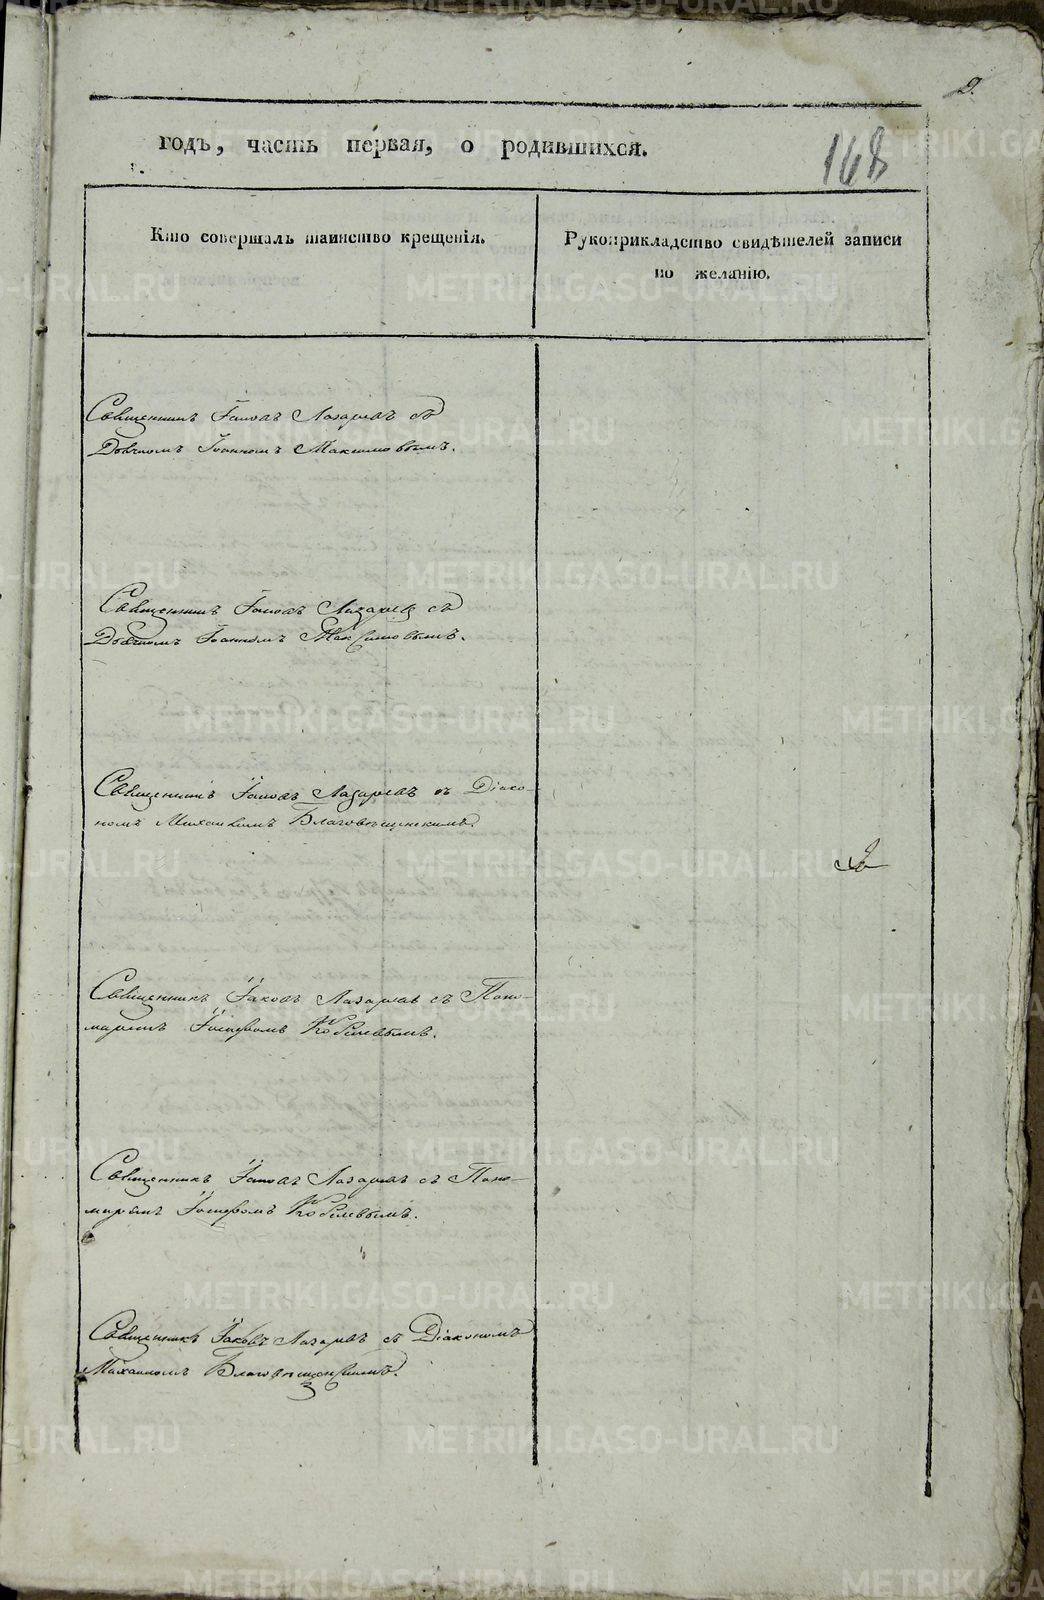 2.
168
годъ, часть первая, о родившихся.
Кто совершалъ таинство крещенія.
Рукоприкладство свидѣтелей записи
по желанію.
Священникъ Іаковъ Лазаревъ съ
Дьячкомъ Іоанномъ Максимовымъ.
Священникъ Іаковъ Лазаревъ съ
Дьячкомъ Іоанномъ Максимовымъ.
Священникъ Іаковъ Лазаревъ съ Діако-
номъ Михаиломъ Благовѣщенскимъ.
Священникъ Іаковъ Лазаревъ съ Поно-
маремъ Іосифомъ Кобелевымъ.
Священникъ Іаковъ Лазаревъ съ Поно-
маремъ Іосифомъ Кобелевымъ.
Священникъ Іаковъ Лазаревъ съ Діакономъ
Михаиломъ Благовѣщенскимъ.
METRIKI.GASO-URAL.RU